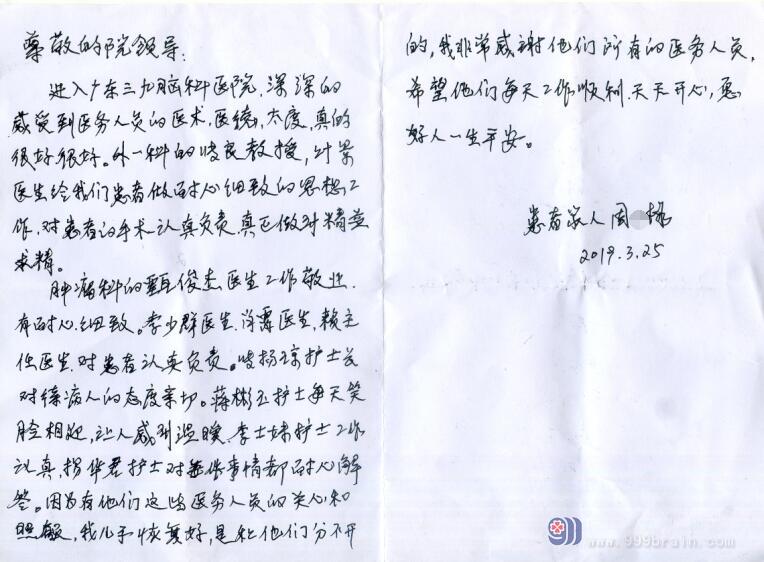 尊敬的院领导:
进入广东三九脑科医院,深深的
感受到医务人员的医术,医德,太度,真的
很好很好。外一科的 教授,叶景
医生给我们患者做耐心细致的思想工
作,对患者的手术认真负责,真正做到精益
求精。
肿瘤科的甄俊杰医生工作敬业.
有耐心.细致。李少群医生.肖霄医生,赖主
任医生.对患者认真负责。 护士长
对待病人的态度亲切。蒋彬玉护士每天笑
脸相迎,让人感到温暖,李士妹护士工作
认真,护士对每件事情都耐心解
答。因为有他们这些医务人员的关心和
照顾,我儿子恢复好,是和他们分不开
的,我非常感谢他们所有的医务人员,
希望他们每天工作顺利.天天开心,愿
好人一生平安。
患者家人 周 杨
2019.3.25
www.999brain.com